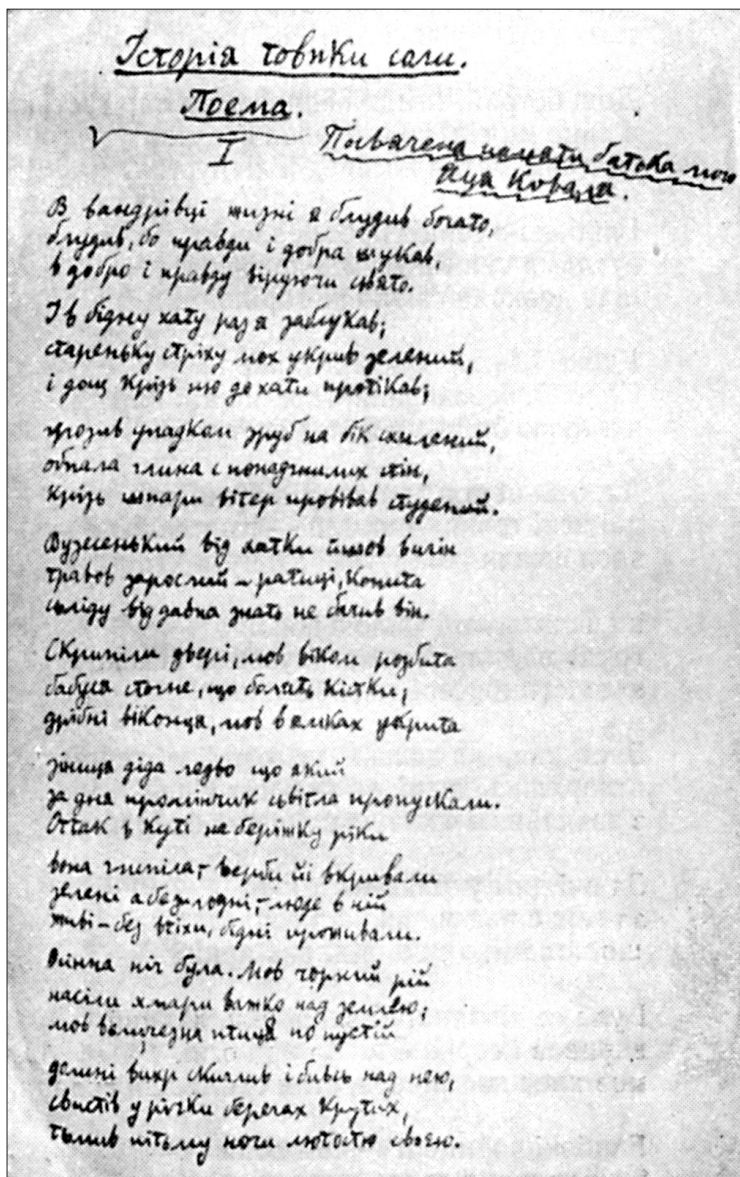 Історія товпки соли.
Поема.
I
Посвячена памяти батька мого
Яця Коваля.
В вандрівці жизні я блудив богато,
блудив, бо правди і добра шукав,
в добро і правду віруючи свято.
І в бідну хату раз я заблукав;
стареньку стріху мох укрив зелений,
і дощ крізь ню до хати протікав;
грозив упадком зруб на бік схилений,
обпала глина с понадгнилих стін,
крізь шпари вітер провівав студений.
Вузесенький від хатки йшов вигін
травов зарослий – ратиці, копита
сьліду від давна знать не бачив він.
Скрипіли двері, мов віком розбита
бабуся стогне, що болять кістки;
дрібні віконця, мов в ямках укрита
зіниця діда ледво що який
за дня промінчик сьвітла пропускали.
Оттак в куті на беріжку ріки
вона гнила, – верби йі вкривали
зелені а безплодні, – люде в ній
живі – без втіхи, бідні проживали.
Осінна ніч була. Мов чорний рій
насіли хмари важко над землею;
мов величезна птиця по пустій
долині вихр скиглив і бивсь над нею,
свистів у річки берегах крутих,
пітьму ночи лютостю своєю.